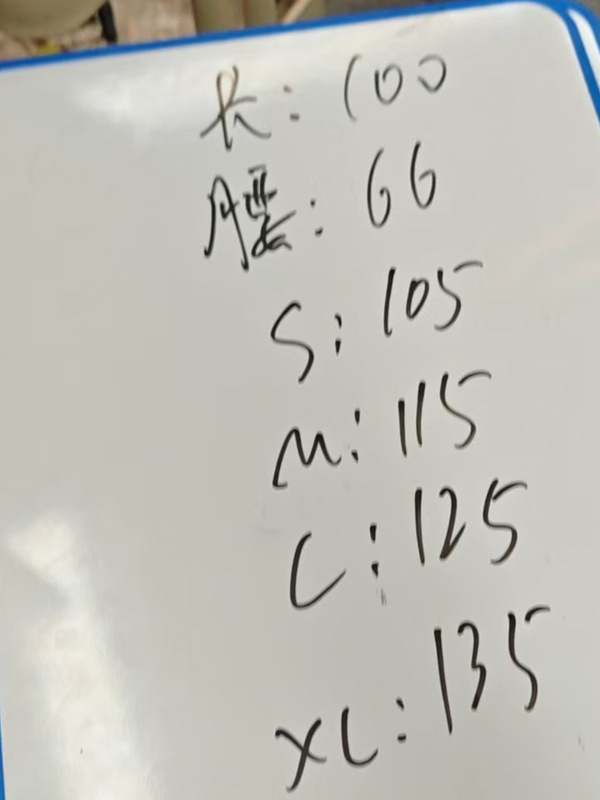 长：100
腰：66
S：105
M：115
L：125
XL：135